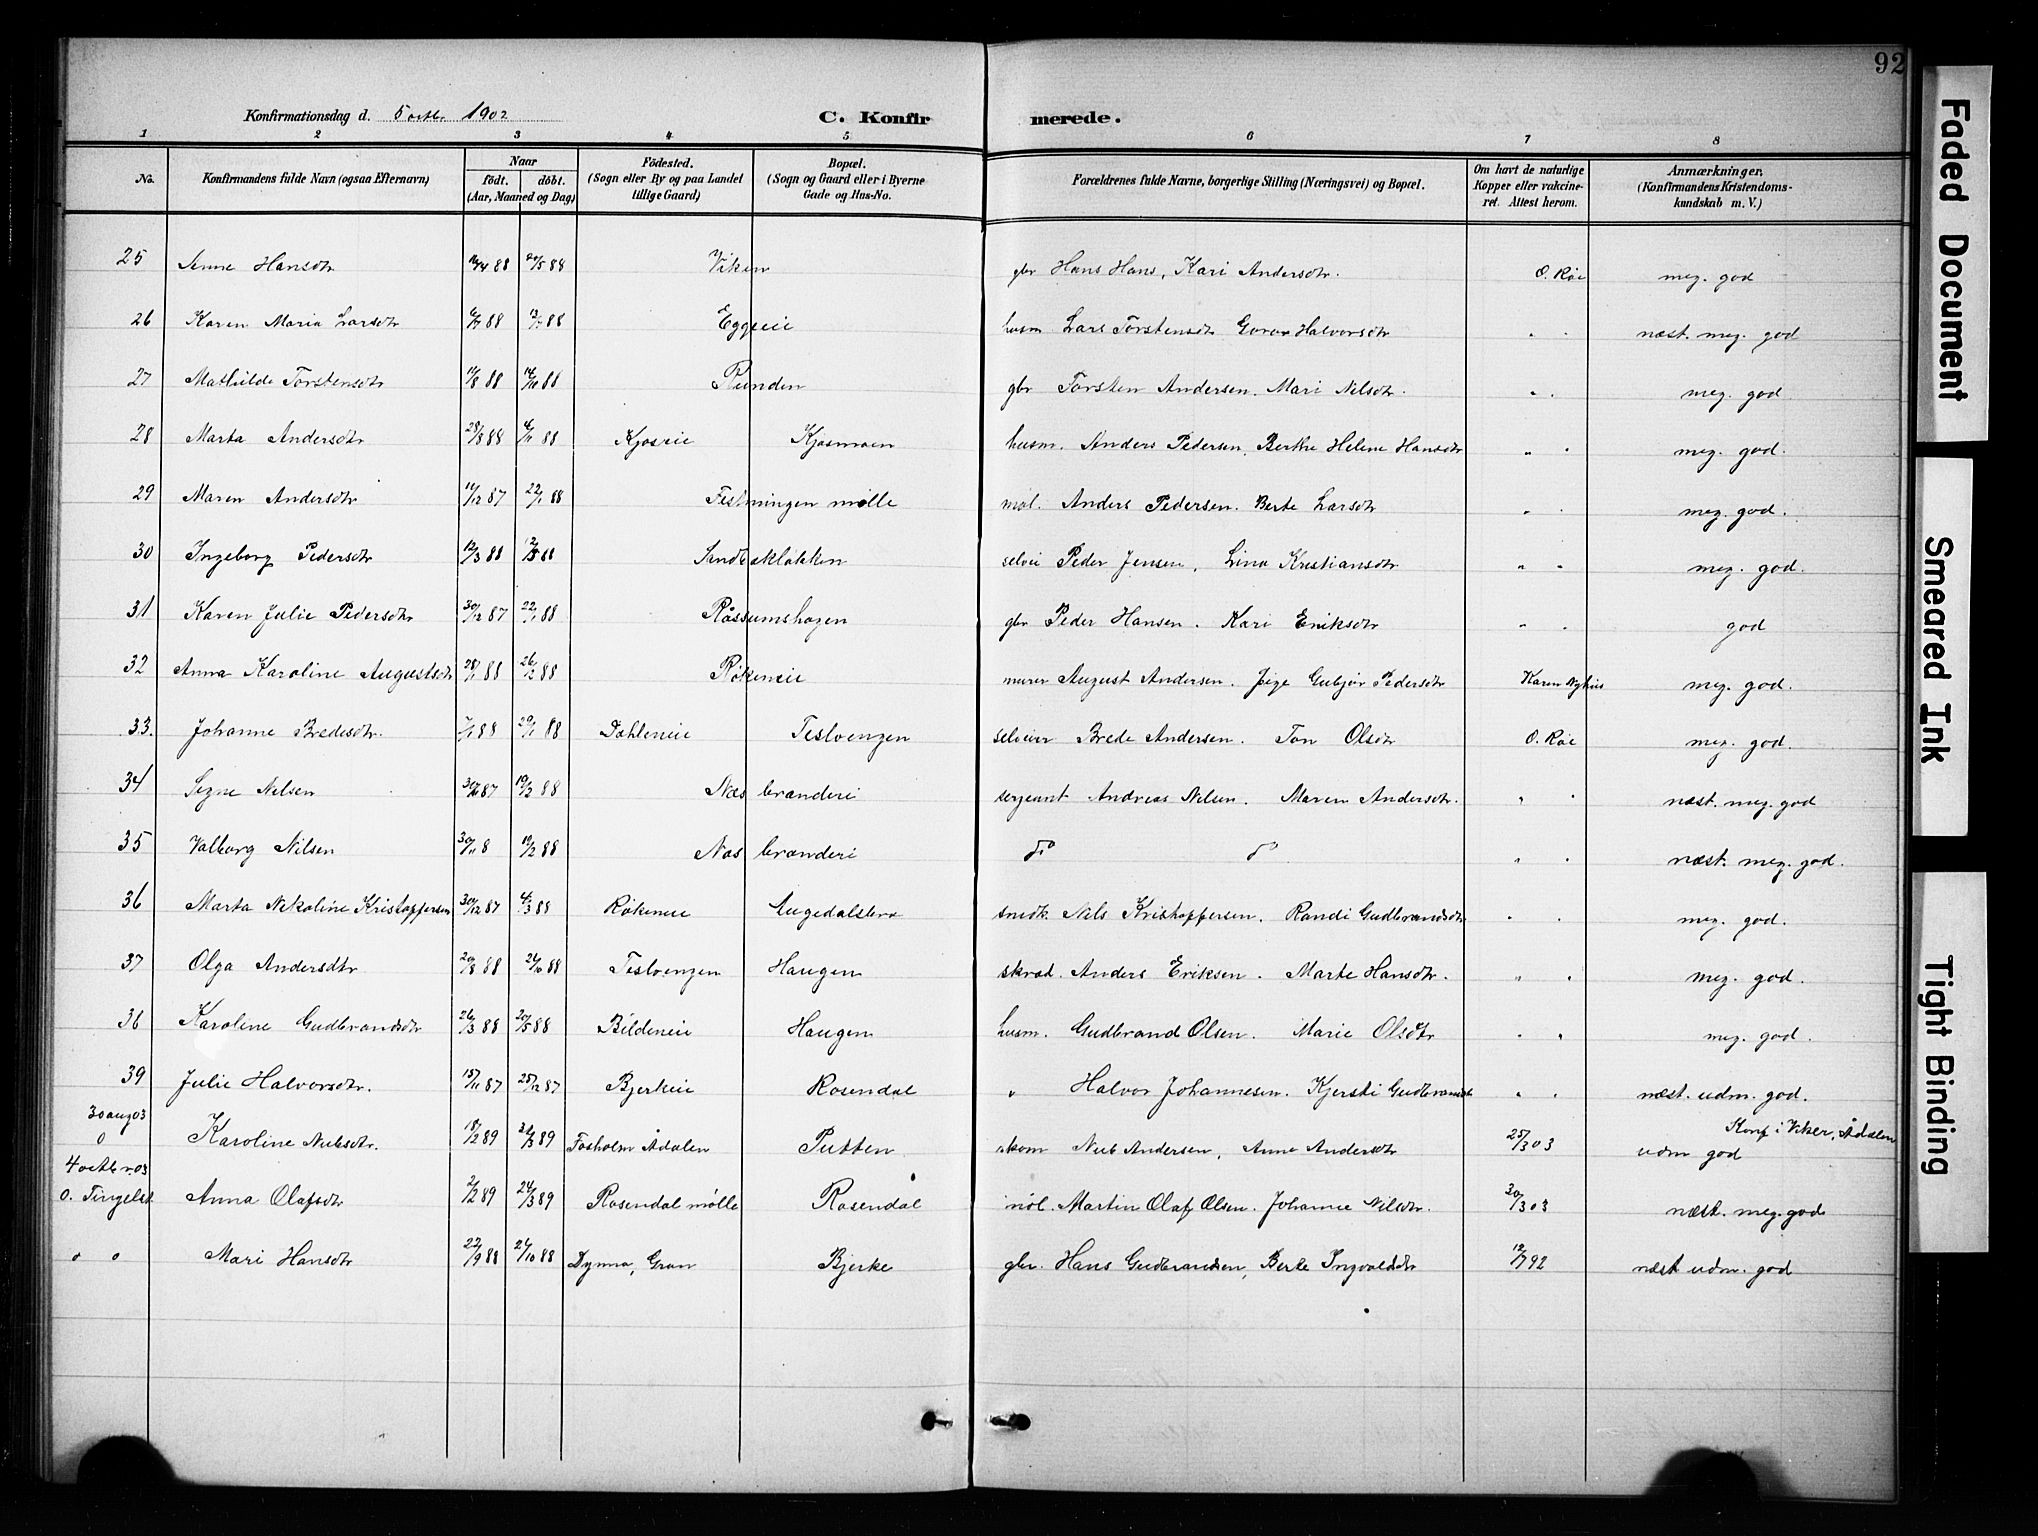 92
Konfirmationsdag d. 5 octbr. 1902 C. Konfirmerede.
1 2 3 4 5 6 7 8
No. Konfirmandens fulde Navn (ogsaa Efternavn) Naar født. døbt. (Aar, Maaned og Dag) Fødested. (Sogn eller By og paa Landet tillige Gaard) Bopæl. (Sogn og Gaard eller i Byerne Gade og Hus-No. Forældrenes fulde Navne, borgerlige Stilling (Næringsvei) og Bopæl. Om havt de naturlige Kopper eller vakcineret. Attest herom. Anmærkninger. (Konfirmandens Kristendomskundskab m. V.)
25 Anne Hansdtr 88 20/5 88 Viken gbr Hans Hans, Kari Andersdtr. O. Røe meg. god
26 Karen Maria Larsdtr 88 88 Eggeeie husm Lars Torstensdtr Goro Halvorsdtr " " næst. meg. god
27 Mathilde Torstensdtr 11/8 88 14/10 88 Runden gbr Torsten Andersen. Mari Nilsdtr. " " meg. god
28 Marta Andersdtr 28/8 88 4/11 88 Kjoseie Kjosmoen husm. Anders Pedersen, Berthe Helene Hansdtr " " meg. god.
29 Maren Andersdtr 11/12 87 22/1 88 Festningen mølle møl. Anders Pedersen. Berte Larsdtr " " meg. god.
30 Ingeborg Pedersdtr 12/3 88 88 Sandbakløkken selvei Peder Jensen, Lina Kristiansdtr " " meg. god.
31 Karen Julie Pedersdtr 30/12 87 22/1 88 Råssumshagen gbr Peder Hansen. Kari Eriksdtr " " god
32 Anna Karoline Augustsdtr 28/1 88 26/2 88 Røkeneie murer August Andersen. Gubjør Pedersdtr Karen Nyhus meg. god.
33. Johanne Bredesdtr. 7/1 88 29/1 88 Dahleneie Teslvengen selveier Brede Andersen. Ton Olsdtr O. Røe meg. god.
34 Signe Nilsen 87 19/2 88 Næs brænderi sergeant Andreas Nilsen. Maren Andersdtr. " " næst. meg. god
35 Valborg Nilsen 30/11 8 19/2 88 Næs brænderi do do " " næst. meg. god.
36 Marta Nikoline Kristoffersen 30/12 87 4/3 88 Røkeneie Augedalsbro snedk. Nils Kristoffersen. Randi Gudbrandsdtr " " meg. god.
37 Olga Andersdtr 20/8 88 21/10 88 Teslvengen Haugen skræd. Anders Eriksen. Marte Hansdtr. " " meg. god.
38 Karoline Gudbrandsdtr 26/3 88 20/5 88 Bildeneie Haugen husm. Gudbrand Olsen. Marie Olsdtr " " meg. god.
39 Julie Halvorsdtr. 15/11 87 25/12 87 Bjerkeie Rosendal " Halvor Johannesen. Kjersti Gudbrandsdtr " " næst. udm. god.
30 aug 03 Karoline Nielsdtr. 18/2 89 31/3 89 Fosholm Ådalen Putten skom Niels Andersen, Anne Andersdtr 25/3 03 udm god Konf i Viker, Ådalen
4 octbr. 03
O. Tingelst Anna Olafsdtr 2/2 89 24/3 89 Rosendal mølle Rosendal møl. Martin Olaf Olsen. Johanne Nilsdtr. 30/3 03 næst. meg. god
" " Mari Hansdtr 22/9 88 21/10 88 Dynna, Gran Bjerke gbr. Hans Gudbrandsen, Berte Ingvaldsdtr 12/7 92 næst udm. god
Faded Document
Smeared Ink
Tight Binding